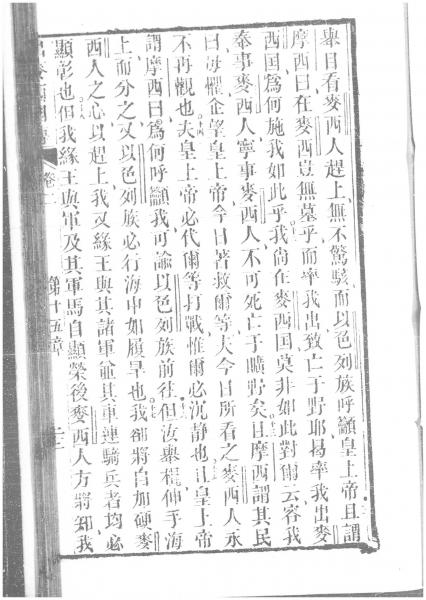 舉目看麥西人趕上無不驚駭而以色列族呼籲皇上帝且謂
摩西曰在麥西豈無墓乎而率我出致亡于野耶曷率我出麥
西国爲何施我如此乎我尚在麥西国莫非如此對爾云容我
奉事麥西人寧事麥西人不可死亡于曠野矣且摩西謂其民
曰毋懼企望皇上帝今日著救爾等夫今日所看之麥西人永
不再觀也夫皇上帝必代爾等打戰惟爾必沉静也且皇上帝
謂摩西曰爲何呼籲我可諭以色列族前往但汝舉棍伸手海
上而分之又以色列族必行海中如履旱也我卻將自加硬麥
西人之心以趕上我又緣王與其諸軍兼其車連騎兵者均必
顯彰也但我緣王與軍及其軍馬自顯榮後麥西人方將知我
卷二 第十五章